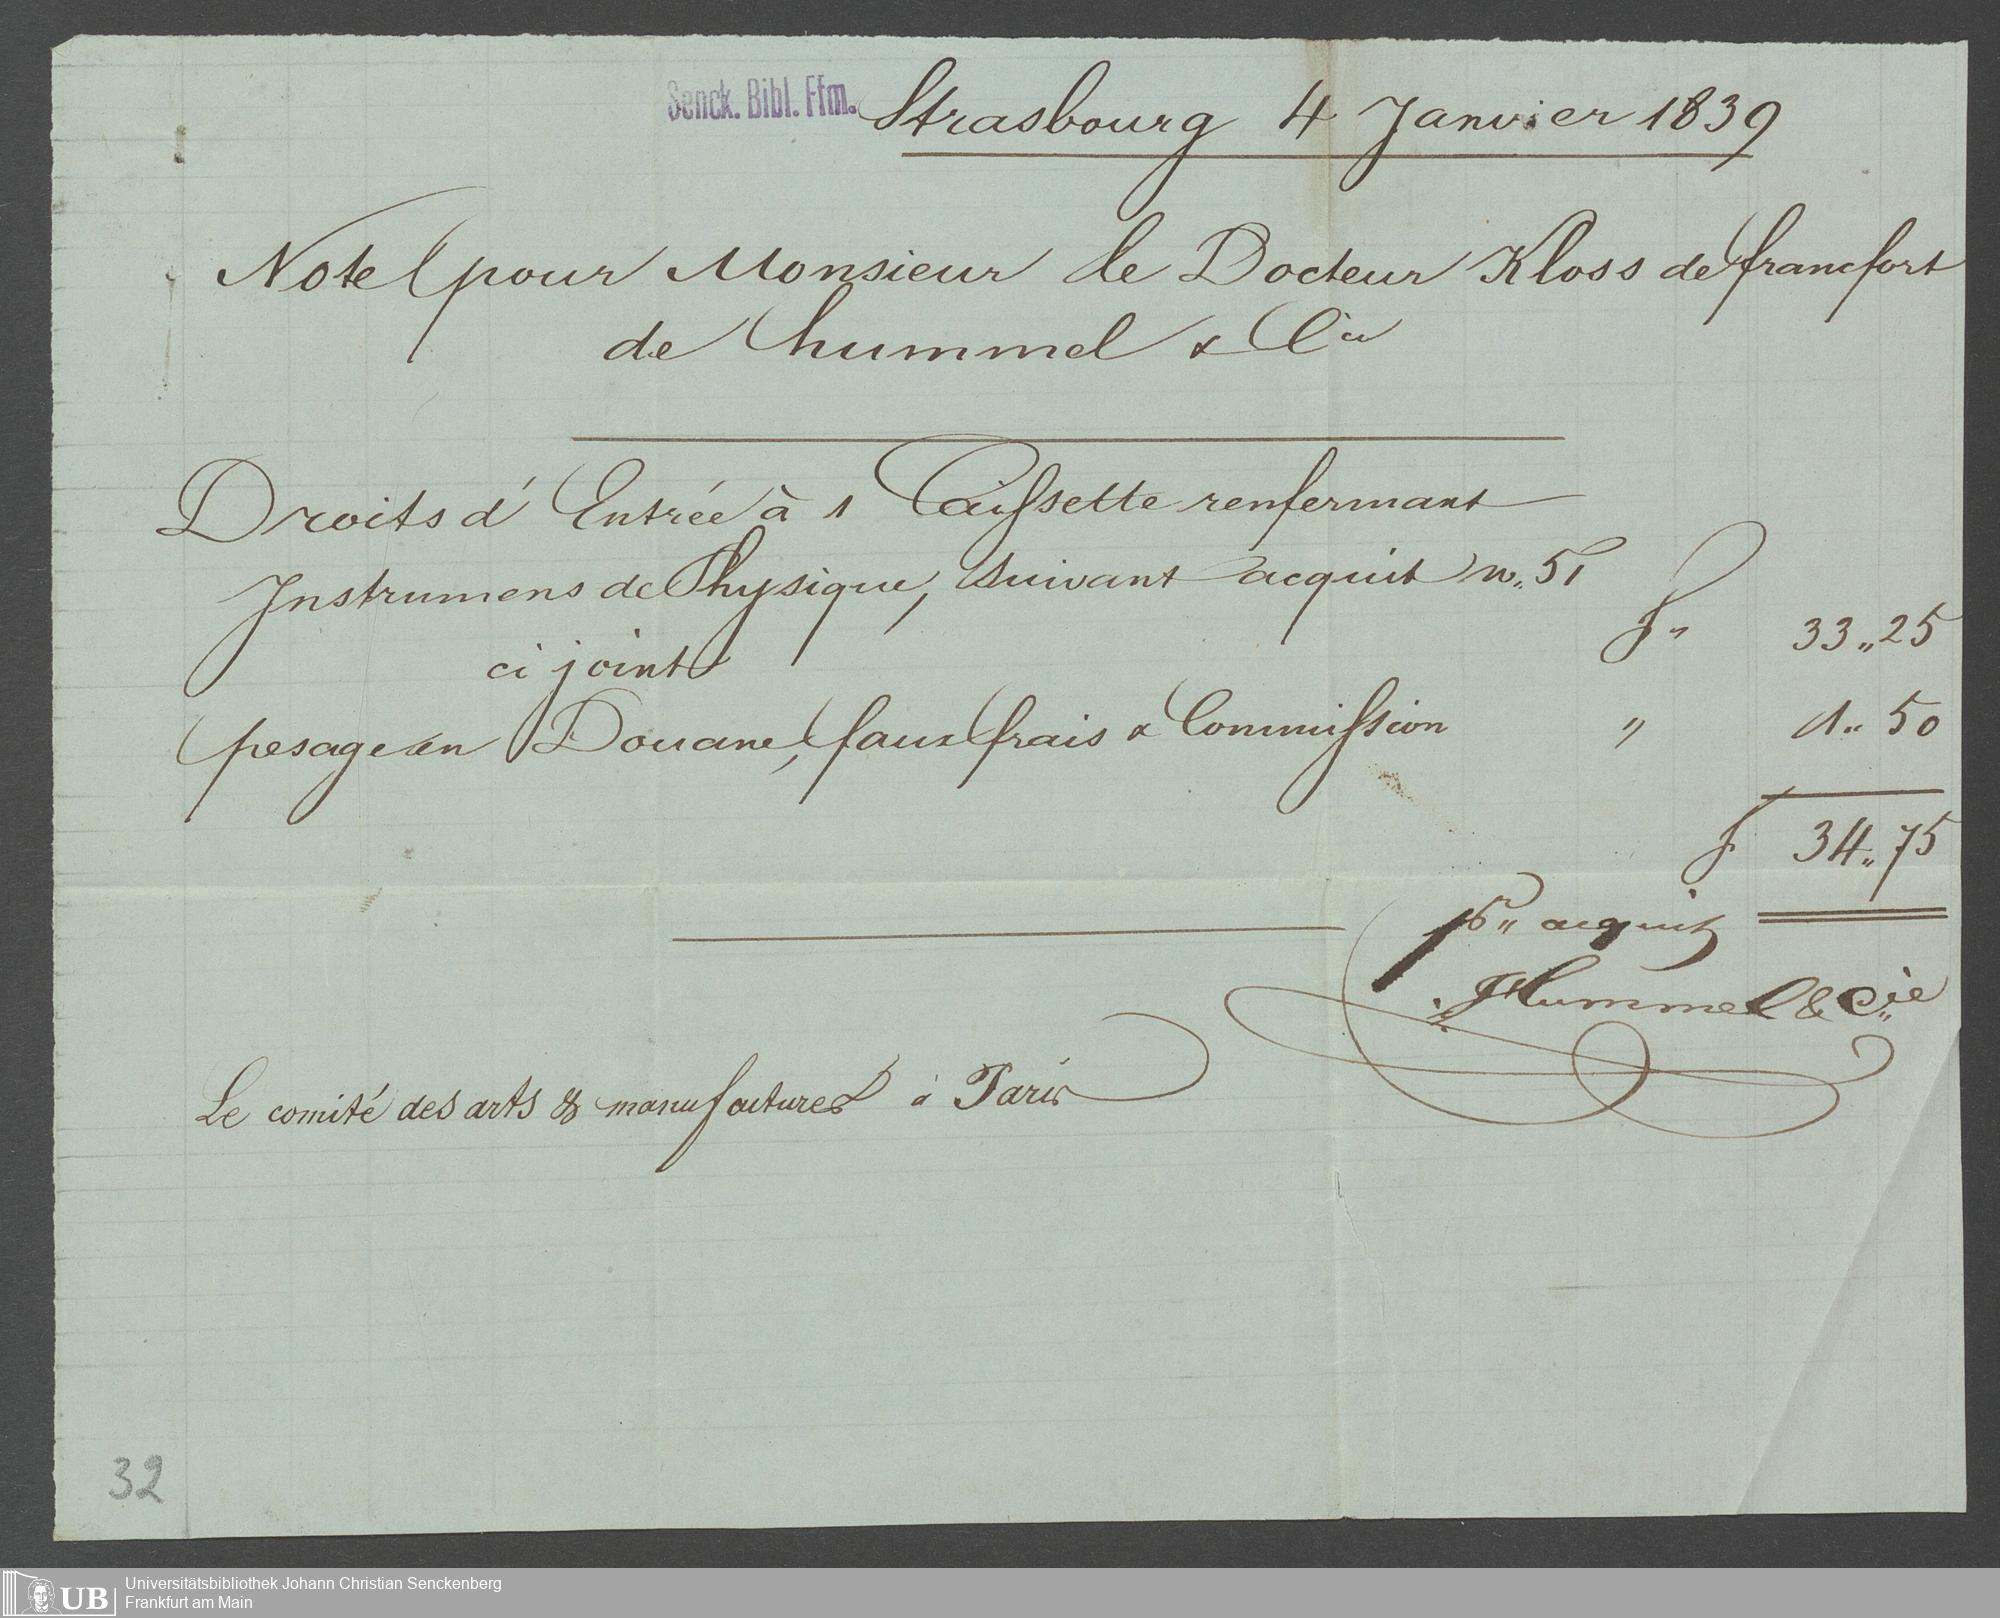 Senck. Bibl. Ffm.
Strasbourg 4 Janvier 1839
Note pour Monsieur le Docteur Kloss de francfort
de hummel & Cie
Droits d'Entrée à 1 Caissette renfermant
Instrumens de Physique, suivant acquit no. 51
ci joint f" 33,,25
pesage en Douane, faux frais & Commission " 1,, 50
f 34,,75
pr acquit
Hummel & Cie
Le comité des arts & manufactures à Paris
32
UB
Universitätsbibliothek Johann Christian Senckenberg
Frankfurt am Main